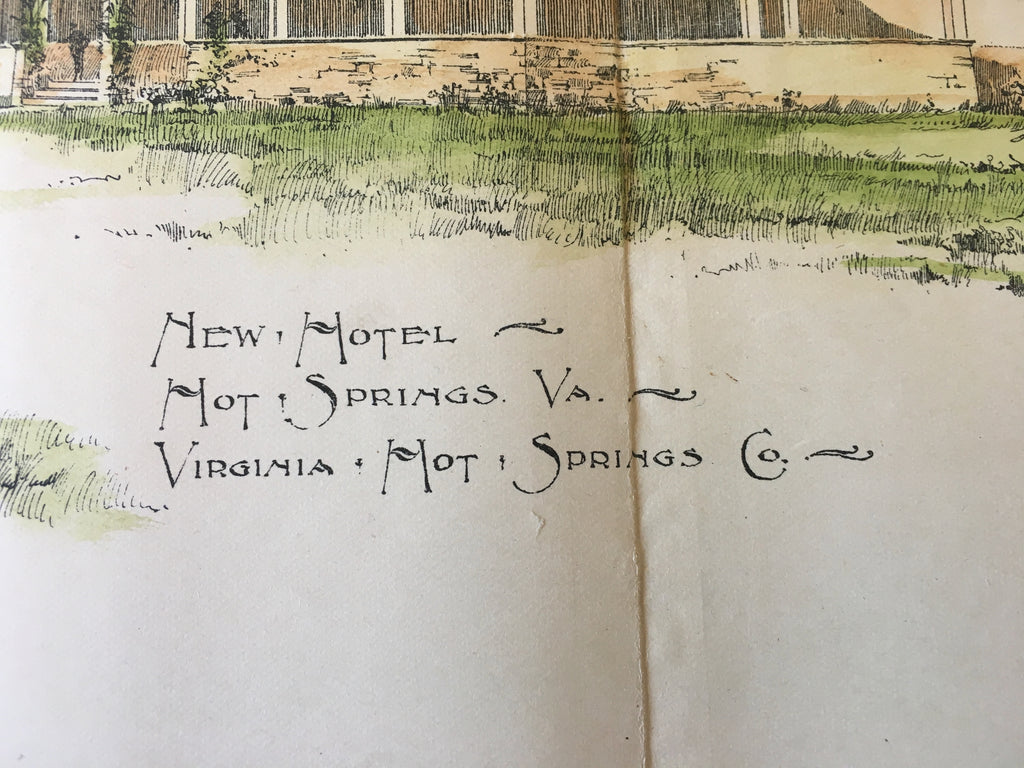 NEW · HOTEL ~
HOT · SPRINGS. VA. ~
VIRGINIA · HOT · SPRINGS CO. ~